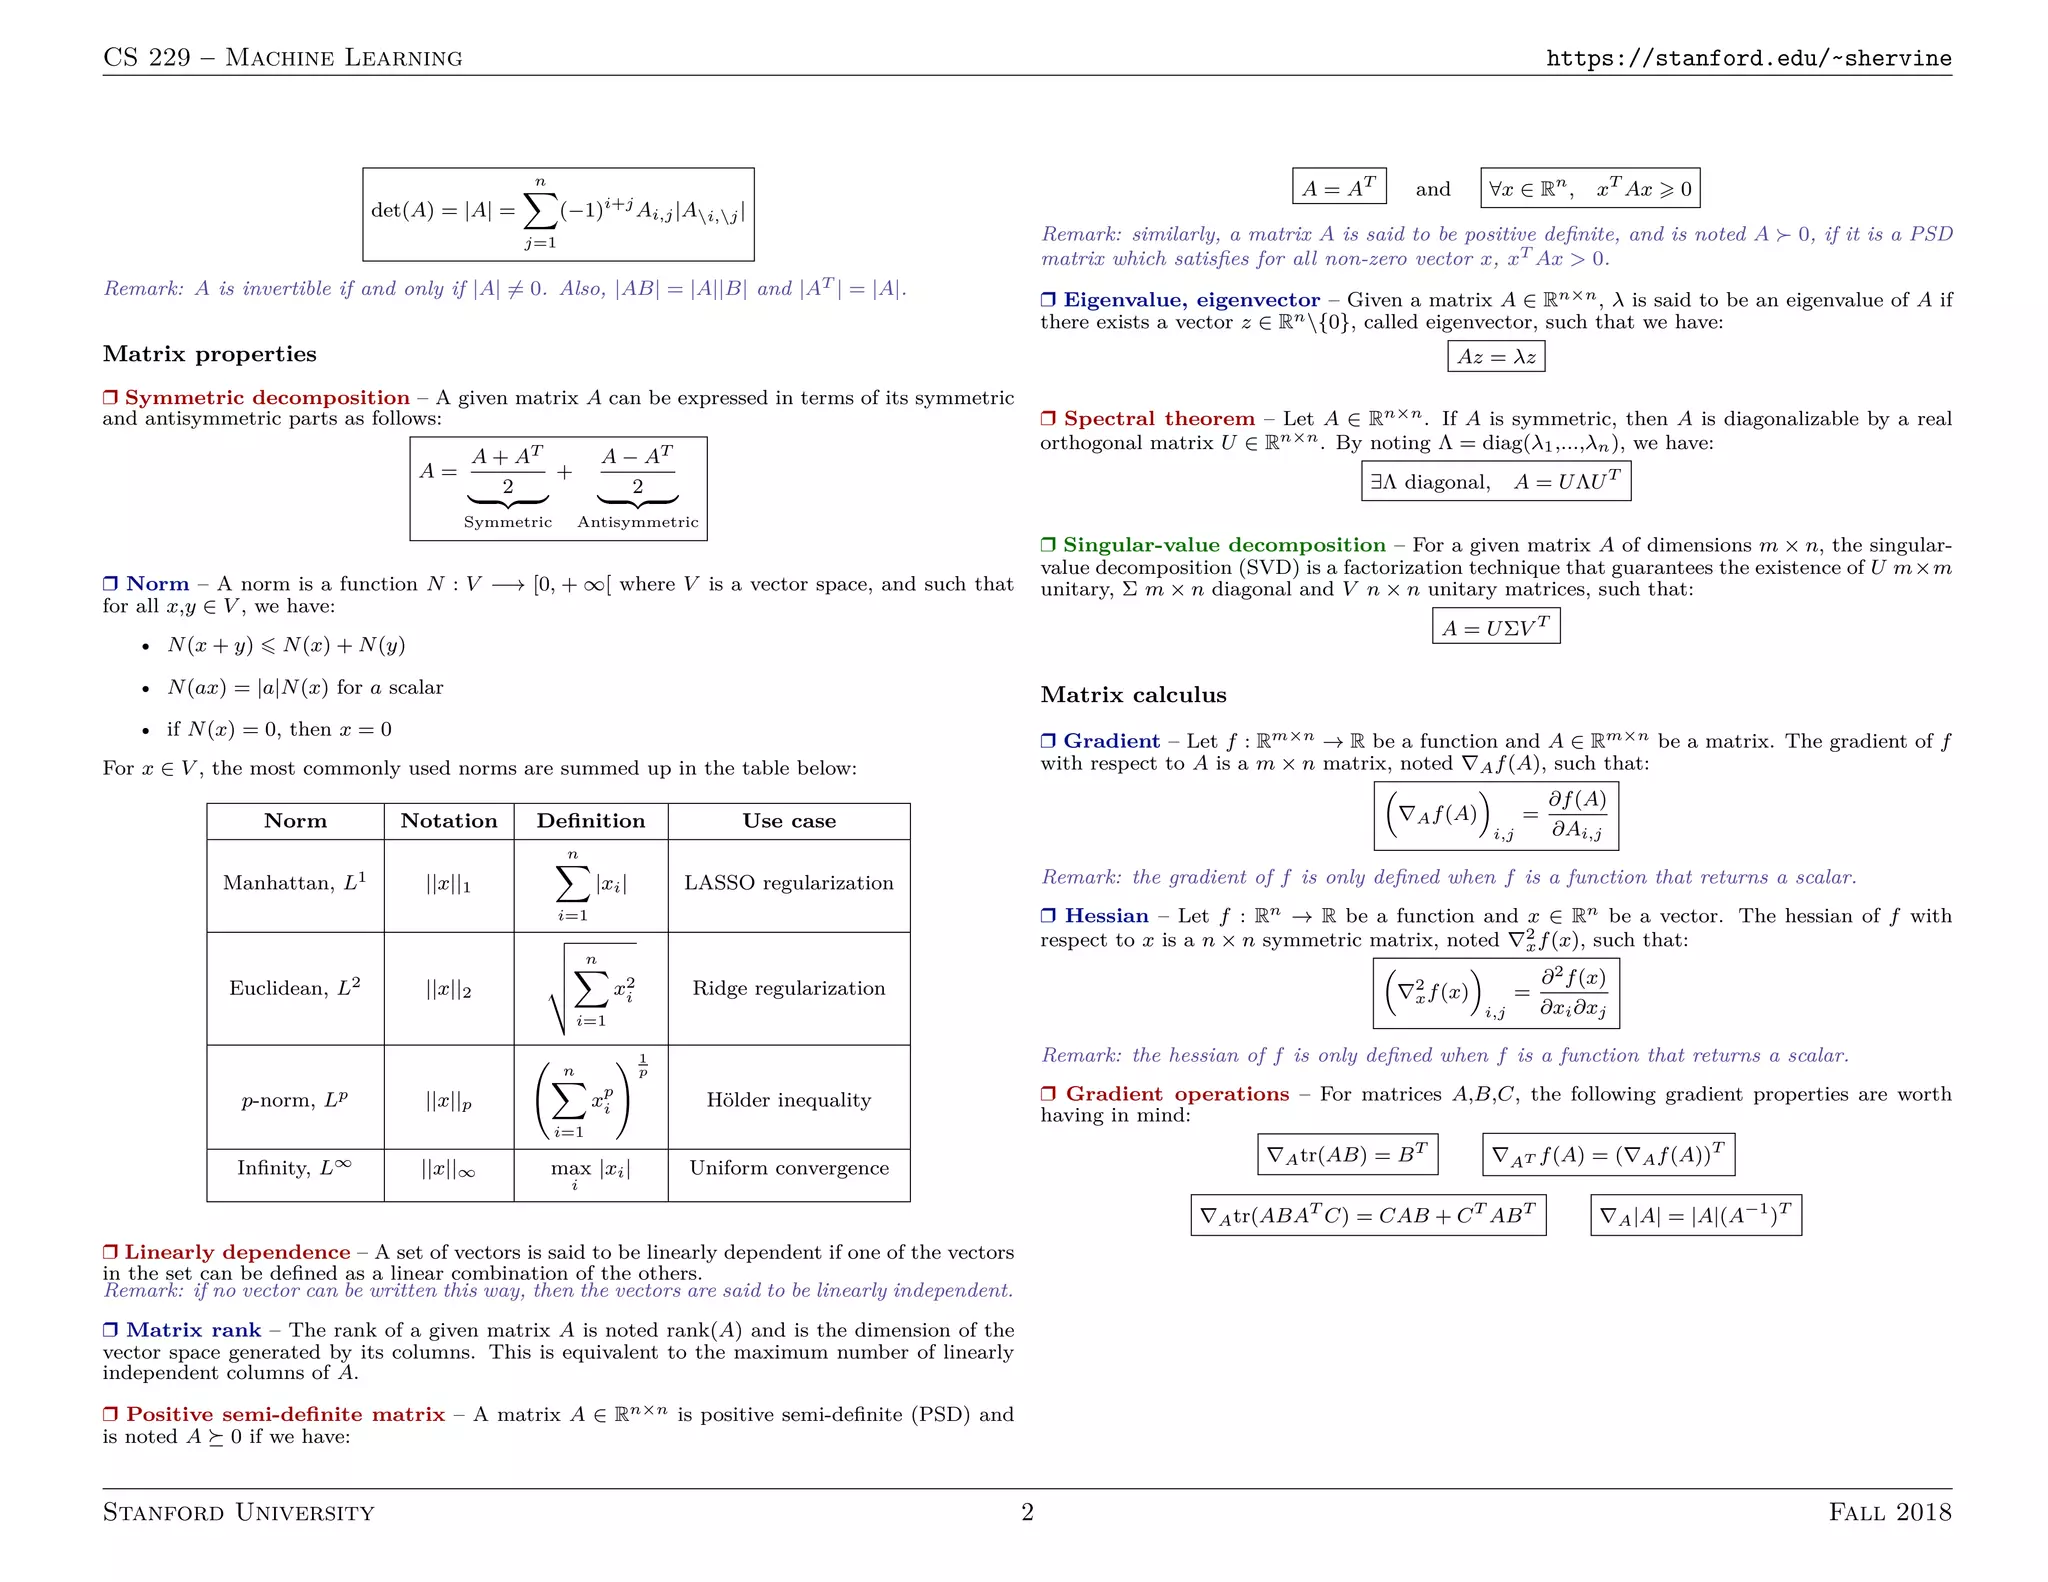 CS 229 – Machine Learning
https://stanford.edu/~shervine
det(A) = |A| = \sum_{j=1}^{n} (−1)^{i+j} A_{i,j} |A_{\backslash i,\backslash j}|
Remark: A is invertible if and only if |A| ≠ 0. Also, |AB| = |A||B| and |A^T| = |A|.
Matrix properties
❒ Symmetric decomposition – A given matrix A can be expressed in terms of its symmetric
and antisymmetric parts as follows:
A = \underbrace{\frac{A + A^T}{2}}_{Symmetric} + \underbrace{\frac{A − A^T}{2}}_{Antisymmetric}
❒ Norm – A norm is a function N : V ⟶ [0, + ∞[ where V is a vector space, and such that
for all x,y ∈ V, we have:
• N(x + y) ⩽ N(x) + N(y)
• N(ax) = |a|N(x) for a scalar
• if N(x) = 0, then x = 0
For x ∈ V, the most commonly used norms are summed up in the table below:
Norm Notation Definition Use case
Manhattan, L^1 ||x||_1 \sum_{i=1}^{n} |x_i| LASSO regularization
Euclidean, L^2 ||x||_2 \sqrt{\sum_{i=1}^{n} x_i^2} Ridge regularization
p-norm, L^p ||x||_p \left(\sum_{i=1}^{n} x_i^p\right)^{\frac{1}{p}} Hölder inequality
Infinity, L^∞ ||x||_∞ \max_i |x_i| Uniform convergence
❒ Linearly dependence – A set of vectors is said to be linearly dependent if one of the vectors
in the set can be defined as a linear combination of the others.
Remark: if no vector can be written this way, then the vectors are said to be linearly independent.
❒ Matrix rank – The rank of a given matrix A is noted rank(A) and is the dimension of the
vector space generated by its columns. This is equivalent to the maximum number of linearly
independent columns of A.
❒ Positive semi-definite matrix – A matrix A ∈ ℝ^{n×n} is positive semi-definite (PSD) and
is noted A ⪰ 0 if we have:
A = A^T and ∀x ∈ ℝ^n, x^T Ax ⩾ 0
Remark: similarly, a matrix A is said to be positive definite, and is noted A ≻ 0, if it is a PSD
matrix which satisfies for all non-zero vector x, x^T Ax > 0.
❒ Eigenvalue, eigenvector – Given a matrix A ∈ ℝ^{n×n}, λ is said to be an eigenvalue of A if
there exists a vector z ∈ ℝ^n\{0}, called eigenvector, such that we have:
Az = λz
❒ Spectral theorem – Let A ∈ ℝ^{n×n}. If A is symmetric, then A is diagonalizable by a real
orthogonal matrix U ∈ ℝ^{n×n}. By noting Λ = diag(λ_1,...,λ_n), we have:
∃Λ diagonal, A = UΛU^T
❒ Singular-value decomposition – For a given matrix A of dimensions m × n, the singular-
value decomposition (SVD) is a factorization technique that guarantees the existence of U m×m
unitary, Σ m × n diagonal and V n × n unitary matrices, such that:
A = UΣV^T
Matrix calculus
❒ Gradient – Let f : ℝ^{m×n} → ℝ be a function and A ∈ ℝ^{m×n} be a matrix. The gradient of f
with respect to A is a m × n matrix, noted ∇_A f(A), such that:
\left(∇_A f(A)\right)_{i,j} = \frac{∂f(A)}{∂A_{i,j}}
Remark: the gradient of f is only defined when f is a function that returns a scalar.
❒ Hessian – Let f : ℝ^n → ℝ be a function and x ∈ ℝ^n be a vector. The hessian of f with
respect to x is a n × n symmetric matrix, noted ∇_x^2 f(x), such that:
\left(∇_x^2 f(x)\right)_{i,j} = \frac{∂^2 f(x)}{∂x_i ∂x_j}
Remark: the hessian of f is only defined when f is a function that returns a scalar.
❒ Gradient operations – For matrices A,B,C, the following gradient properties are worth
having in mind:
∇_A tr(AB) = B^T ∇_{A^T} f(A) = (∇_A f(A))^T
∇_A tr(ABA^T C) = CAB + C^T AB^T ∇_A |A| = |A|(A^{−1})^T
Stanford University
2
Fall 2018